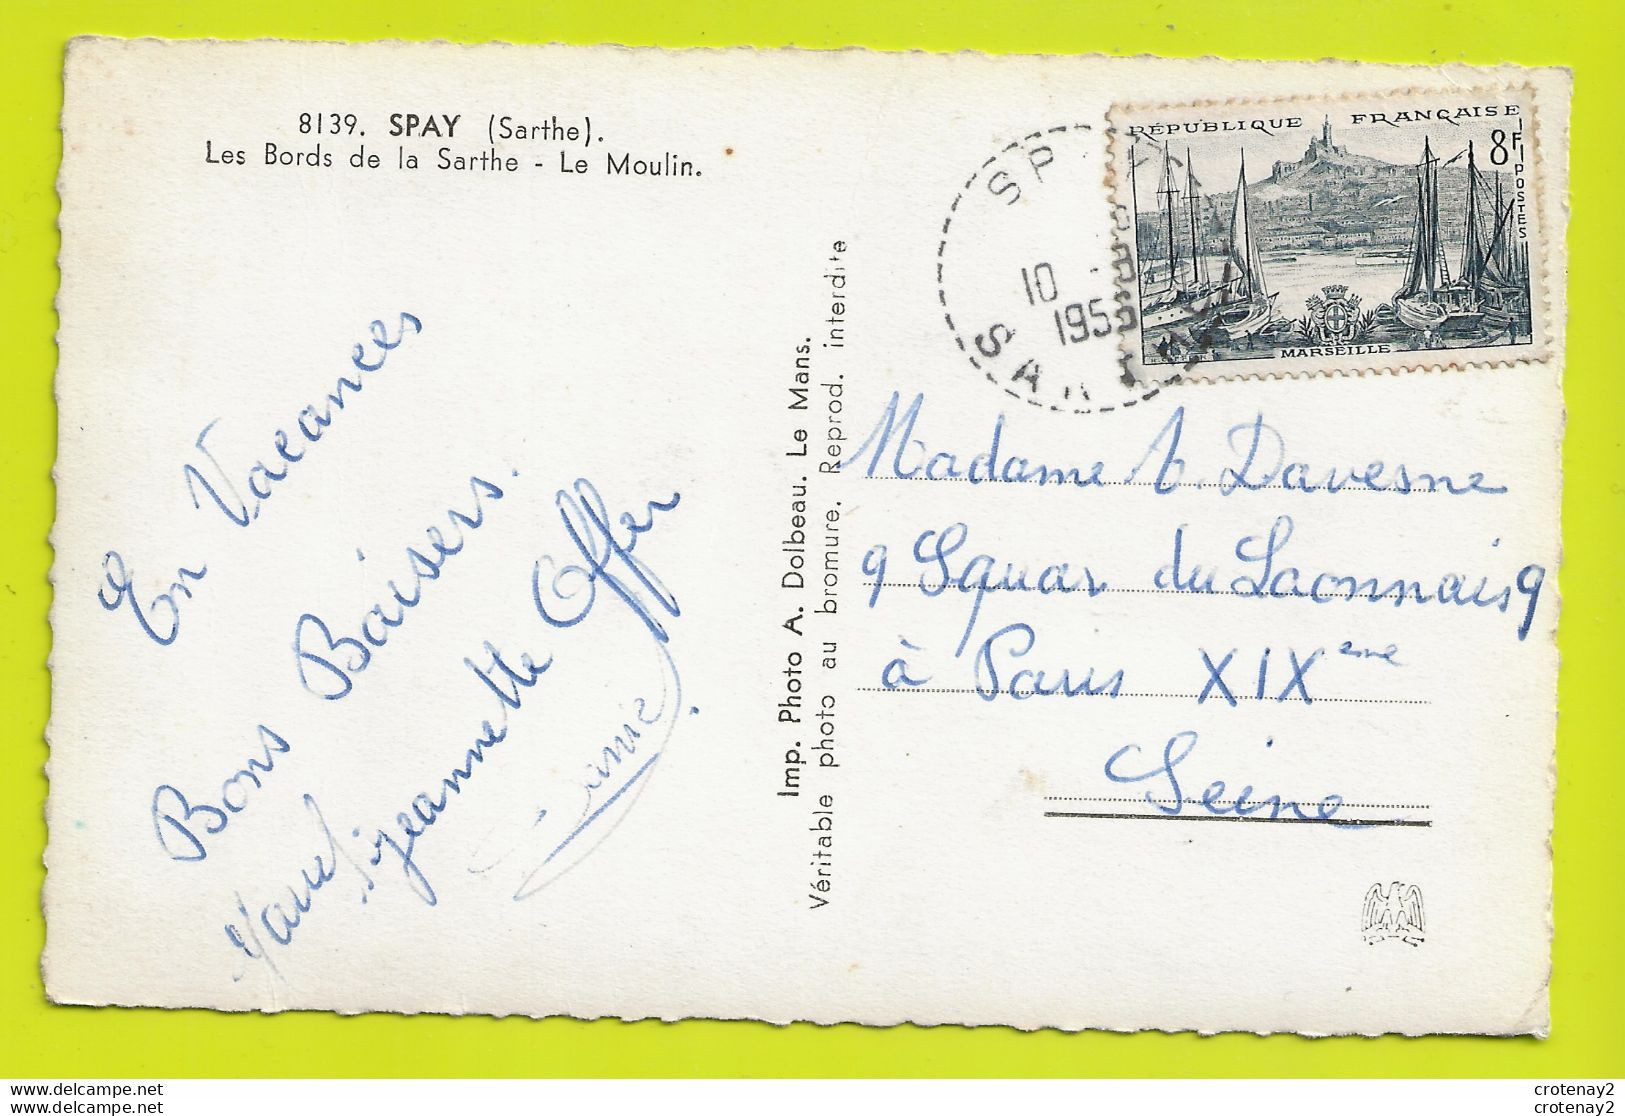 8139. SPAY (Sarthe).
Les Bords de la Sarthe - Le Moulin.
En Vacances
Bons Baisers.
Jeannette Offer
Imp. Photo A. Dolbeau. Le Mans.
Véritable photo au bromure. Reprod. interdite
SPAY
10 -8
1955
SARTHE
RÉPUBLIQUE FRANÇAISE
8F
POSTES
MARSEILLE
Madame A. Davesne
9 Squar du Laonnais 9
à Paris XIX eme
Seine
www.delcampe.net
www.delcampe.net
crotenay2
crotenay2